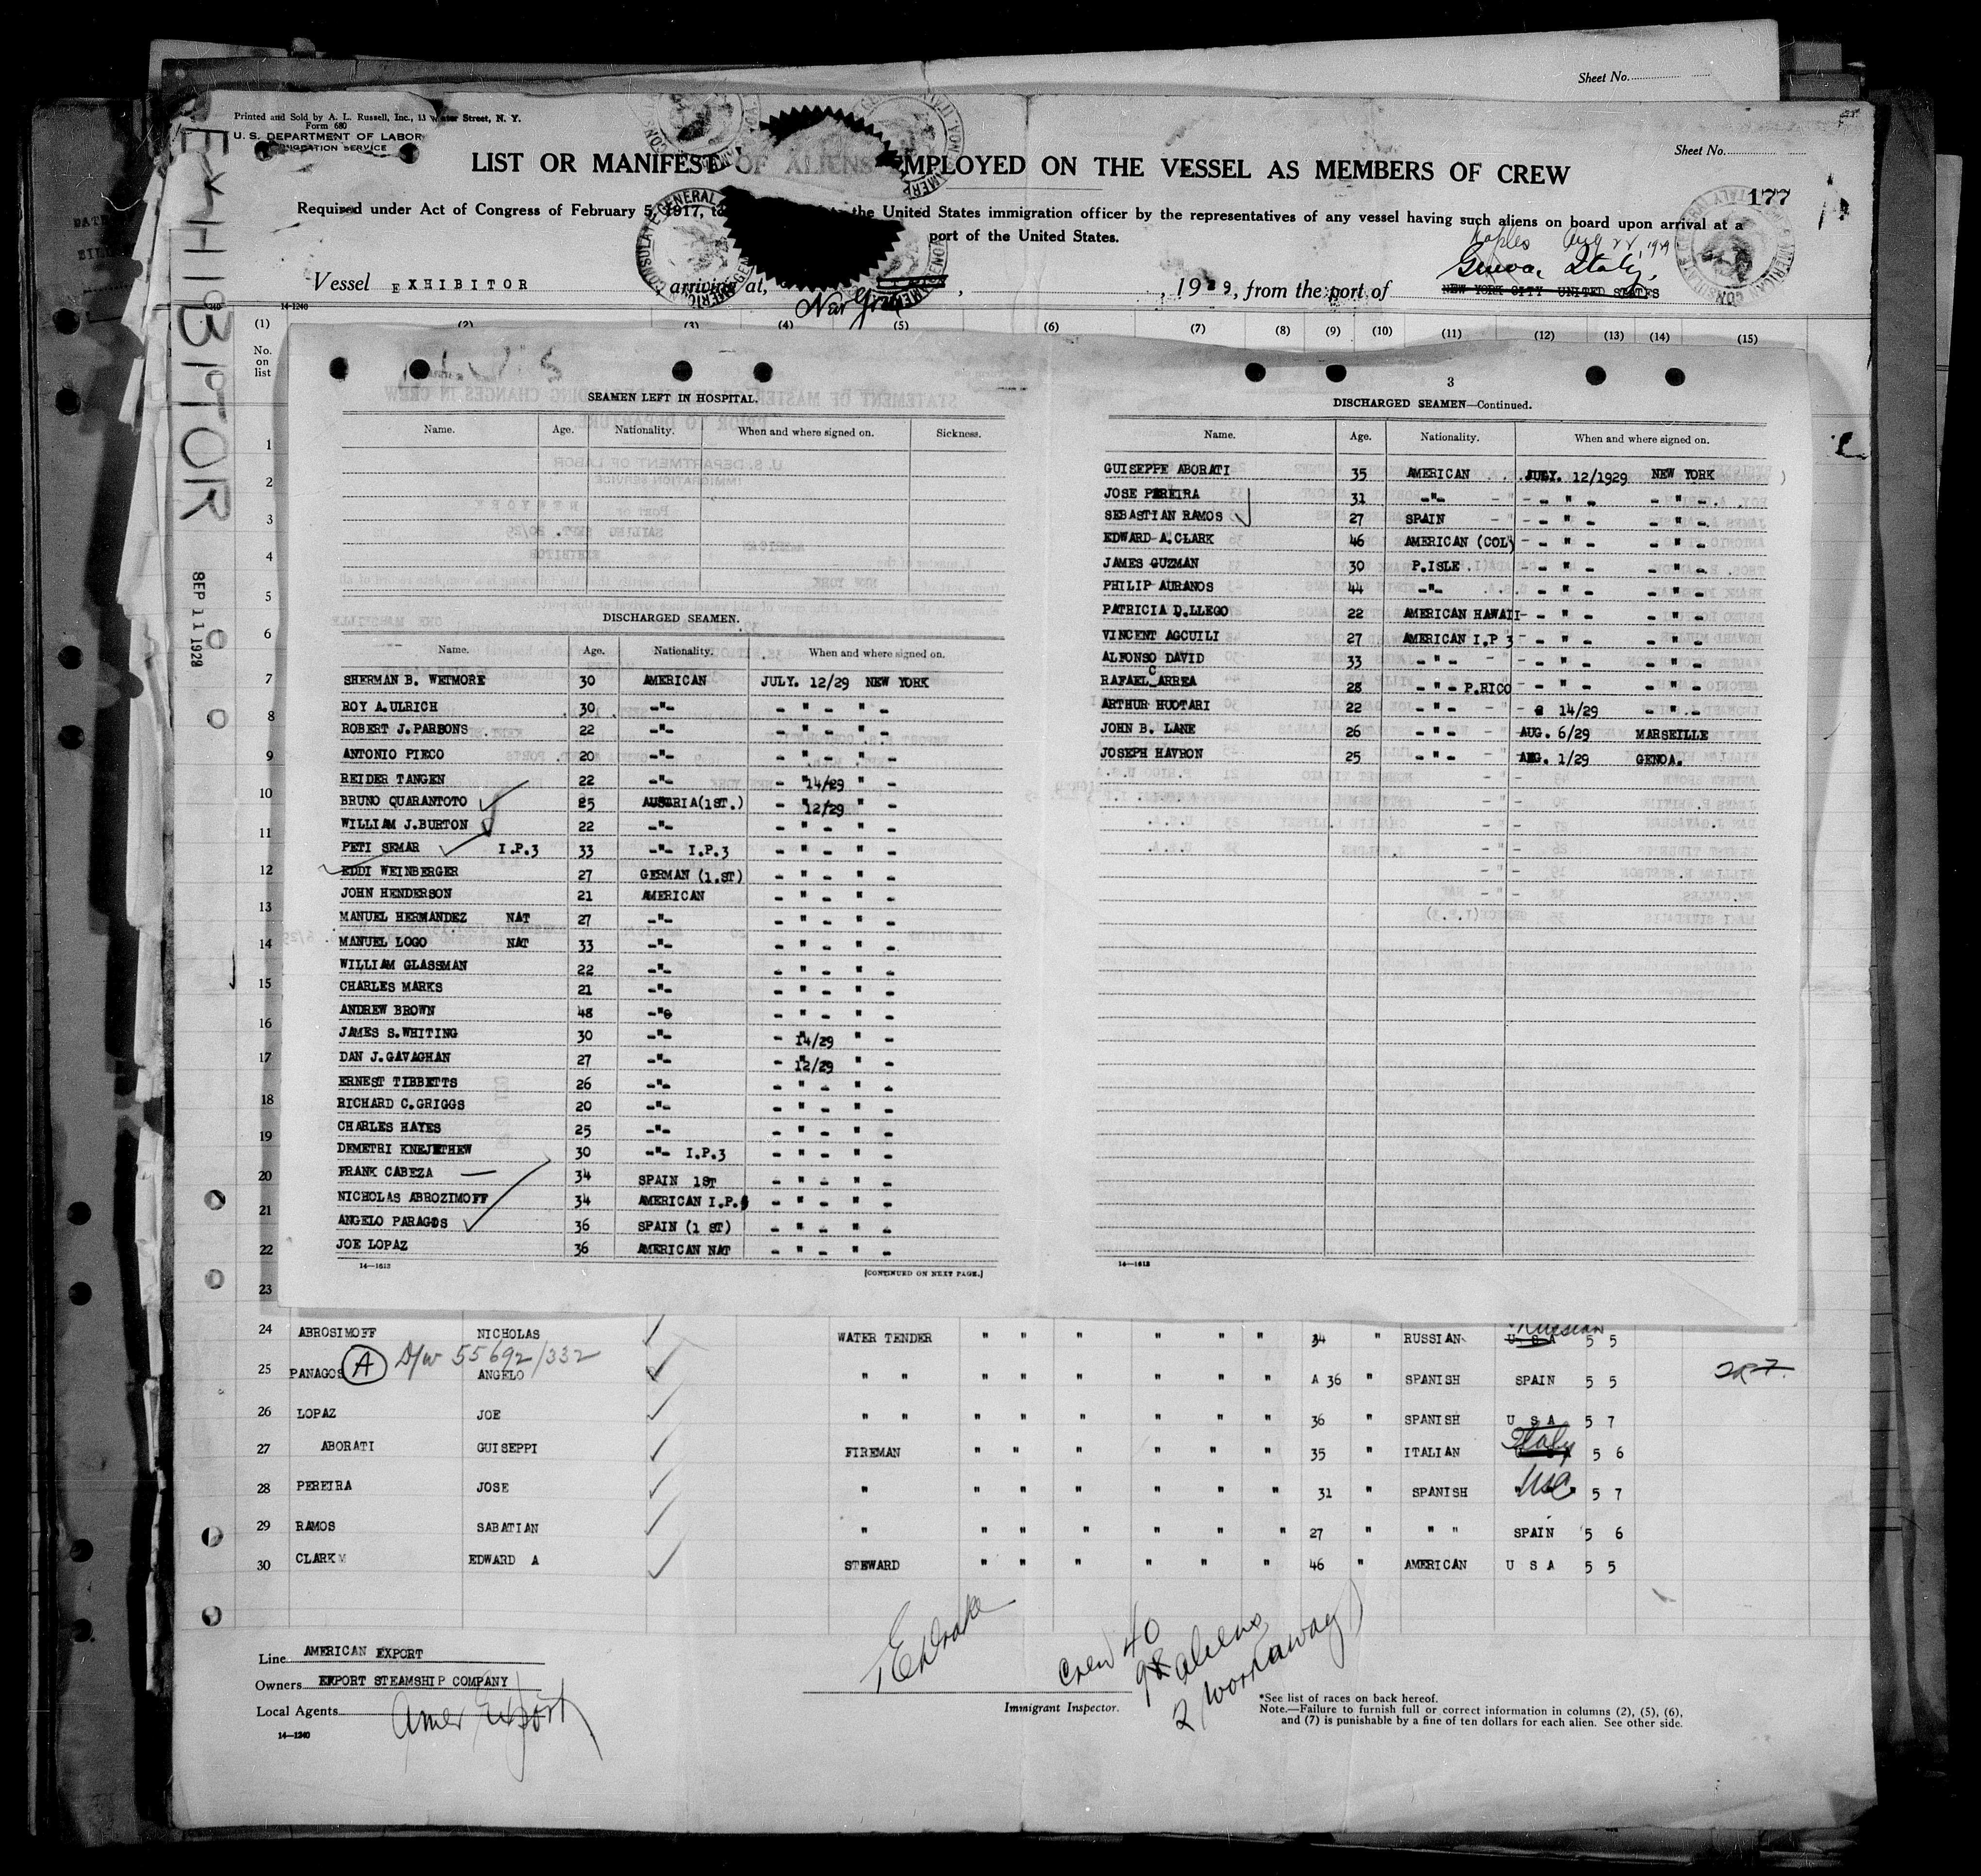 Sheet No.
Printed and Sold by A. L. Russell, Inc., 13 Water Street, N. Y.
Form 680
U. S. DEPARTMENT OF LABOR
IMMIGRATION SERVICE
Sheet No.
LIST OR MANIFEST OF ALIENS EMPLOYED ON THE VESSEL AS MEMBERS OF CREW
177
Required under Act of Congress of February 5, 1917, to the United States immigration officer by the representatives of any vessel having such aliens on board upon arrival at a
port of the United States.
Naples Aug 22, 1929
Genoa Italy,
Vessel EXHIBITOR arriving at, New York, 1929, from the port of NEW YORK CITY UNITED STATES
EXHIBITOR
SEP 11 1929
14-1240
(1) (2) (3) (4) (5) (6) (7) (8) (9) (10) (11) (12) (13) (14) (15)
No. on list
3
SEAMEN LEFT IN HOSPITAL.
Name. Age. Nationality. When and where signed on. Sickness.
DISCHARGED SEAMEN.
Name. Age. Nationality. When and where signed on.
SHERMAN B. WETMORE 30 AMERICAN JULY. 12/29 NEW YORK
ROY A. ULRICH 30 -"- - " - " -
ROBERT J. PARSONS 22 -"- - " - " -
ANTONIO PIECO 20 -"- - " - " -
REIDER TANGEN 22 -"- - "14/29 " -
BRUNO QUARANTOTO 25 AUSTRIA(1ST.) - "12/29 " -
WILLIAM J. BURTON 22 -"- - " - " -
PETI SEMAR I.P.3 33 -"- I.P.3 - " - " -
EDDI WEINBERGER 27 GERMAN (1.ST) - " - " -
JOHN HENDERSON 21 AMERICAN - " - " -
MANUEL HERMANDEZ NAT 27 -"- - " - " -
MANUEL LOGO NAT 33 -"- - " - " -
WILLIAM GLASSMAN 22 -"- - " - " -
CHARLES MARKS 21 -"- - " - " -
ANDREW BROWN 48 -"- - " - " -
JAMES S. WHITING 30 -"- - 14/29 " -
DAN J. GAVAGHAN 27 -"- - 12/29 " -
ERNEST TIBBETTS 26 -"- - " - " -
RICHARD C. GRIGGS 20 -"- - " - " -
CHARLES HAYES 25 -"- - " - " -
DEMETRI KNEJETHEW 30 -"- I.P.3 - " - " -
FRANK CABEZA 34 SPAIN 1ST - " - " -
NICHOLAS ABROZIMOFF 34 AMERICAN I.P. - " - " -
ANGELO PARAGOS 36 SPAIN (1 ST) - " - " -
JOE LOPAZ 36 AMERICAN NAT - " - " -
14—1613 [CONTINUED ON NEXT PAGE.]
DISCHARGED SEAMEN—Continued.
Name. Age. Nationality. When and where signed on.
GUISEPPE ABORATI 35 AMERICAN JULY. 12/1929 NEW YORK
JOSE PEREIRA 31 -"- - " - - " -
SEBASTIAN RAMOS 27 SPAIN - " - - " -
EDWARD A. CLARK 46 AMERICAN (COL) - " - - " -
JAMES GUZMAN 30 P.ISLE - " - - " -
PHILIP AURANOS 44 -"- - " - - " -
PATRICIA D. LLEGO 22 AMERICAN HAWAII - " - - " -
VINCENT AGCUILI 27 AMERICAN I.P 3 - " - - " -
ALFONSO DAVID 33 - " - - " - - " -
RAFAEL C ARREA 28 - " - P.RICO - " - - " -
ARTHUR HUOTARI 22 - " - 14/29 - " -
JOHN B. LANE 26 - " - AUG. 6/29 MARSEILLE
JOSEPH HAVRON 25 - " - AUG. 1/29 GENOA.
14—1613
1
2
3
4
5
6
7
8
9
10
11
12
13
14
15
16
17
18
19
20
21
22
23
24 ABROSIMOFF NICHOLAS WATER TENDER " " " " " " 34 " RUSSIAN Russian U S A 5 5
25 PANAGOS (A) D/W 55692/332 ANGELO " " " " " " " " A 36 " SPANISH SPAIN 5 5
26 LOPAZ JOE " " " " " " " " 36 SPANISH U S A 5 7
27 ABORATI GUISEPPI FIREMAN " " " " " " 35 " ITALIAN Italy 5 6
28 PEREIRA JOSE " " " " " " " 31 " SPANISH USA 5 7
29 RAMOS SABATIAN " " " " " " " 27 " " " SPAIN 5 6
30 CLARK EDWARD A STEWARD " " " " " " 46 " AMERICAN U S A 5 5
Line AMERICAN EXPORT
Owners EXPORT STEAMSHIP COMPANY
Local Agents Amer Export
14—1240
Immigrant Inspector.
Crew 40
9 aliens
2 workaway
*See list of races on back hereof.
Note.—Failure to furnish full or correct information in columns (2), (5), (6),
and (7) is punishable by a fine of ten dollars for each alien. See other side.